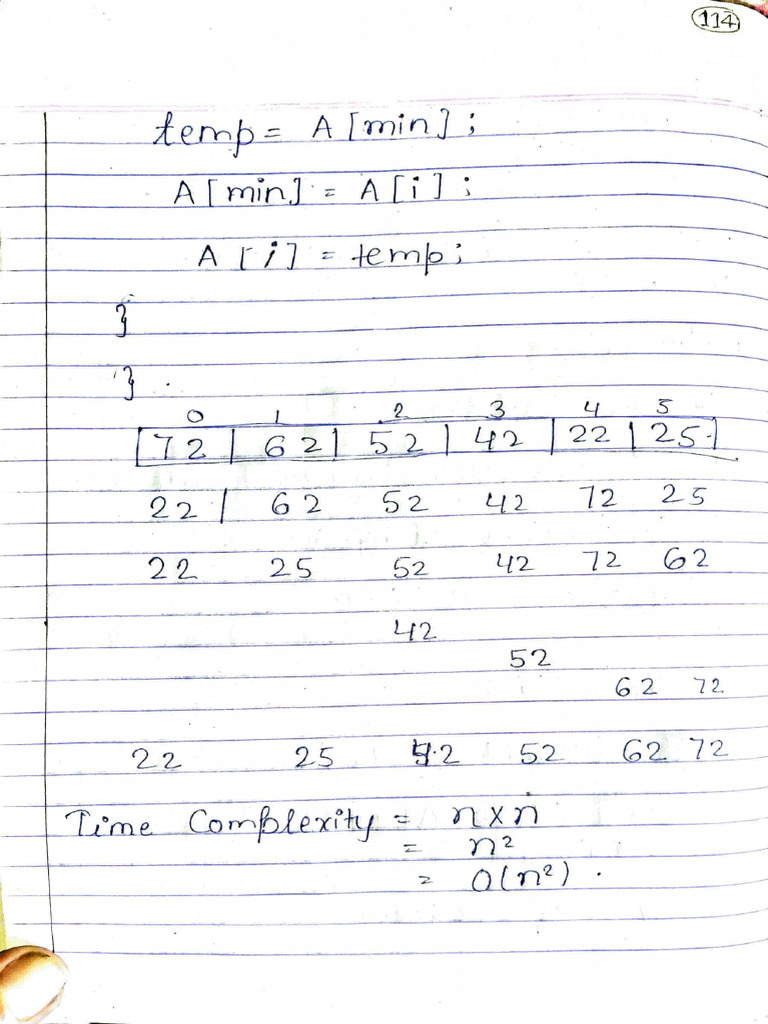 114
temp = A [min] ;
A [min] = A [i] ;
A [i] = temp ;
}
}
0 1 2 3 4 5
72 | 62 | 52 | 42 | 22 | 25
22 | 62 52 42 72 25
22 25 52 42 72 62
42
52
62 72
22 25 42 52 62 72
Time Complexity = n x n
= n²
= O(n²) .